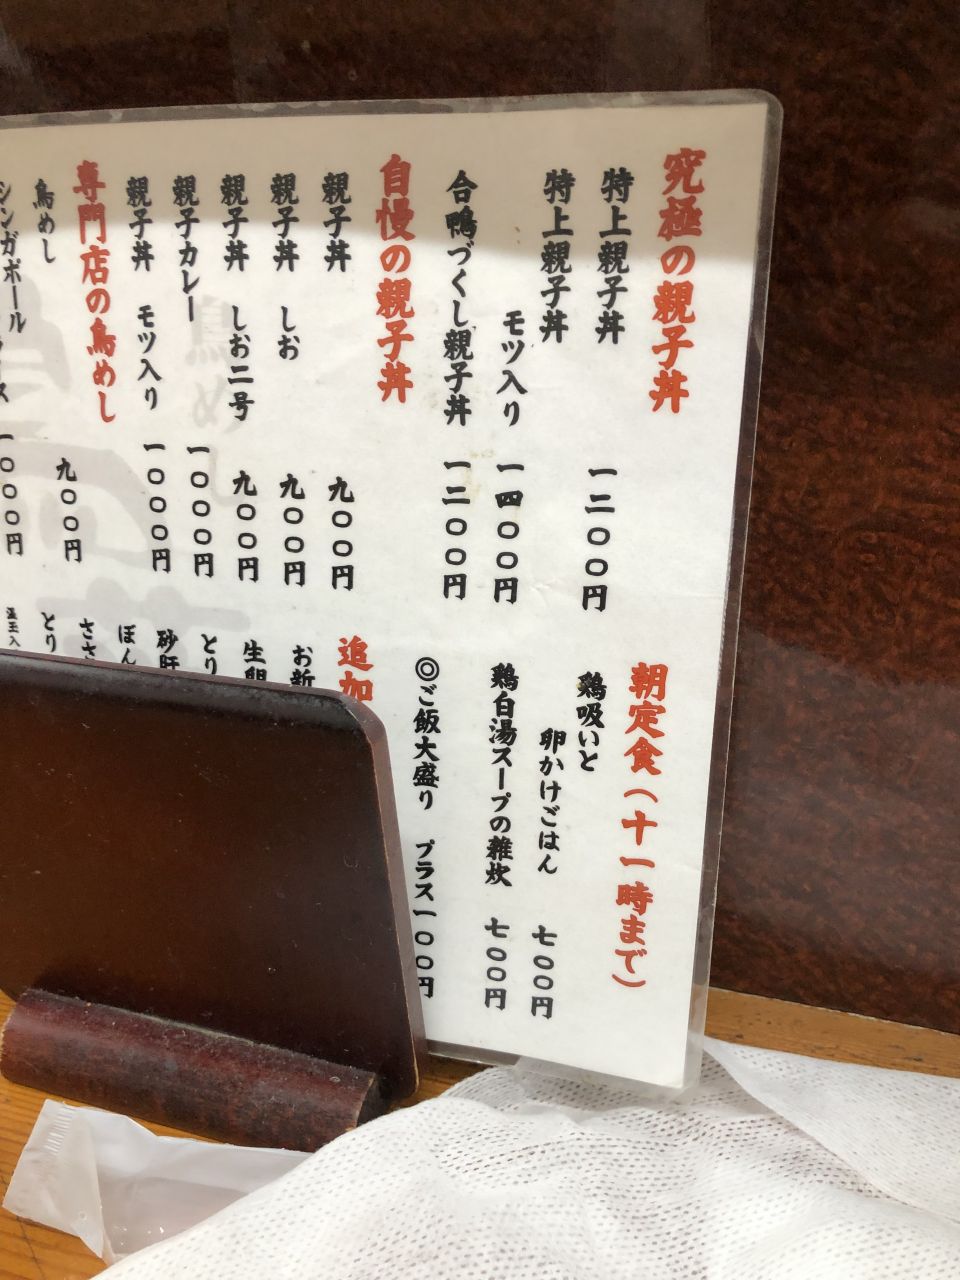 究極の親子丼
特上親子丼 一二〇〇円
特上親子丼
モツ入り 一四〇〇円
合鴨づくし親子丼 一二〇〇円
自慢の親子丼
親子丼 九〇〇円
親子丼 しお 九〇〇円
親子丼 しお二号 九〇〇円
親子カレー 一〇〇〇円
親子丼 モツ入り 一〇〇〇円
専門店の鳥めし
鳥めし 九〇〇円
シンガポール 一〇〇〇円
朝定食(十一時まで)
鶏吸いと
卵かけごはん 七〇〇円
鶏白湯スープの雑炊 七〇〇円
◎ご飯大盛り プラス一〇〇円
追加
お新
生卵
とり
砂肝
ぼん
ささ
とり
温玉入